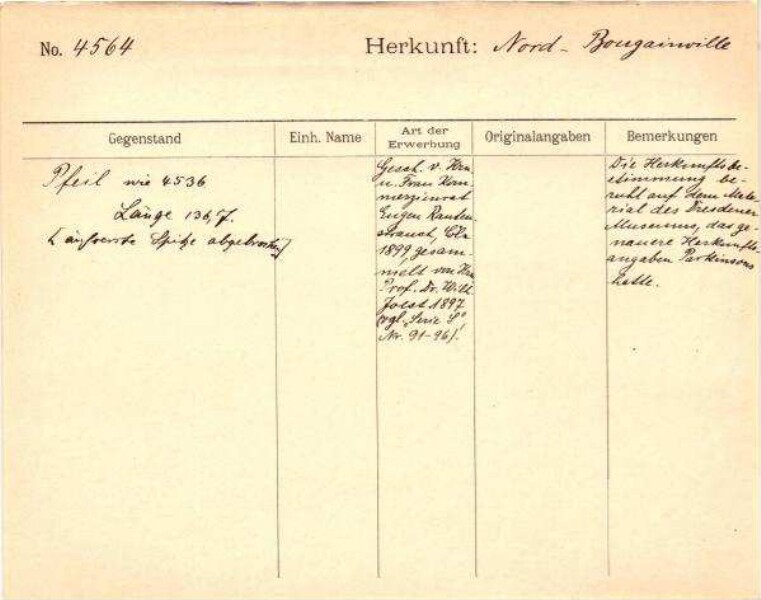 No. 4564
Herkunft: Nord-Bougainville
Gegenstand
Einh. Name
Art der Erwerbung
Originalangaben
Bemerkungen
Pfeil wie 4536
Länge 136,7.
(äußerste Spitze abgebrochen)
Gesch. v. Hrn
u. Frau Kom-
merzienrat
Eugen Rauten-
strauch, Cln
1899, gesam-
melt von Hrn
Prof. Dr. W. 
Joest 1897
(vgl. „Serie S"
Nr. 91-96).
Die Herkunftsbe-
stimmung be-
ruht auf dem Mate-
rial des Dresdener
Museums, das ge-
nauere Herkunfts-
angaben Parkinsons
hatte.